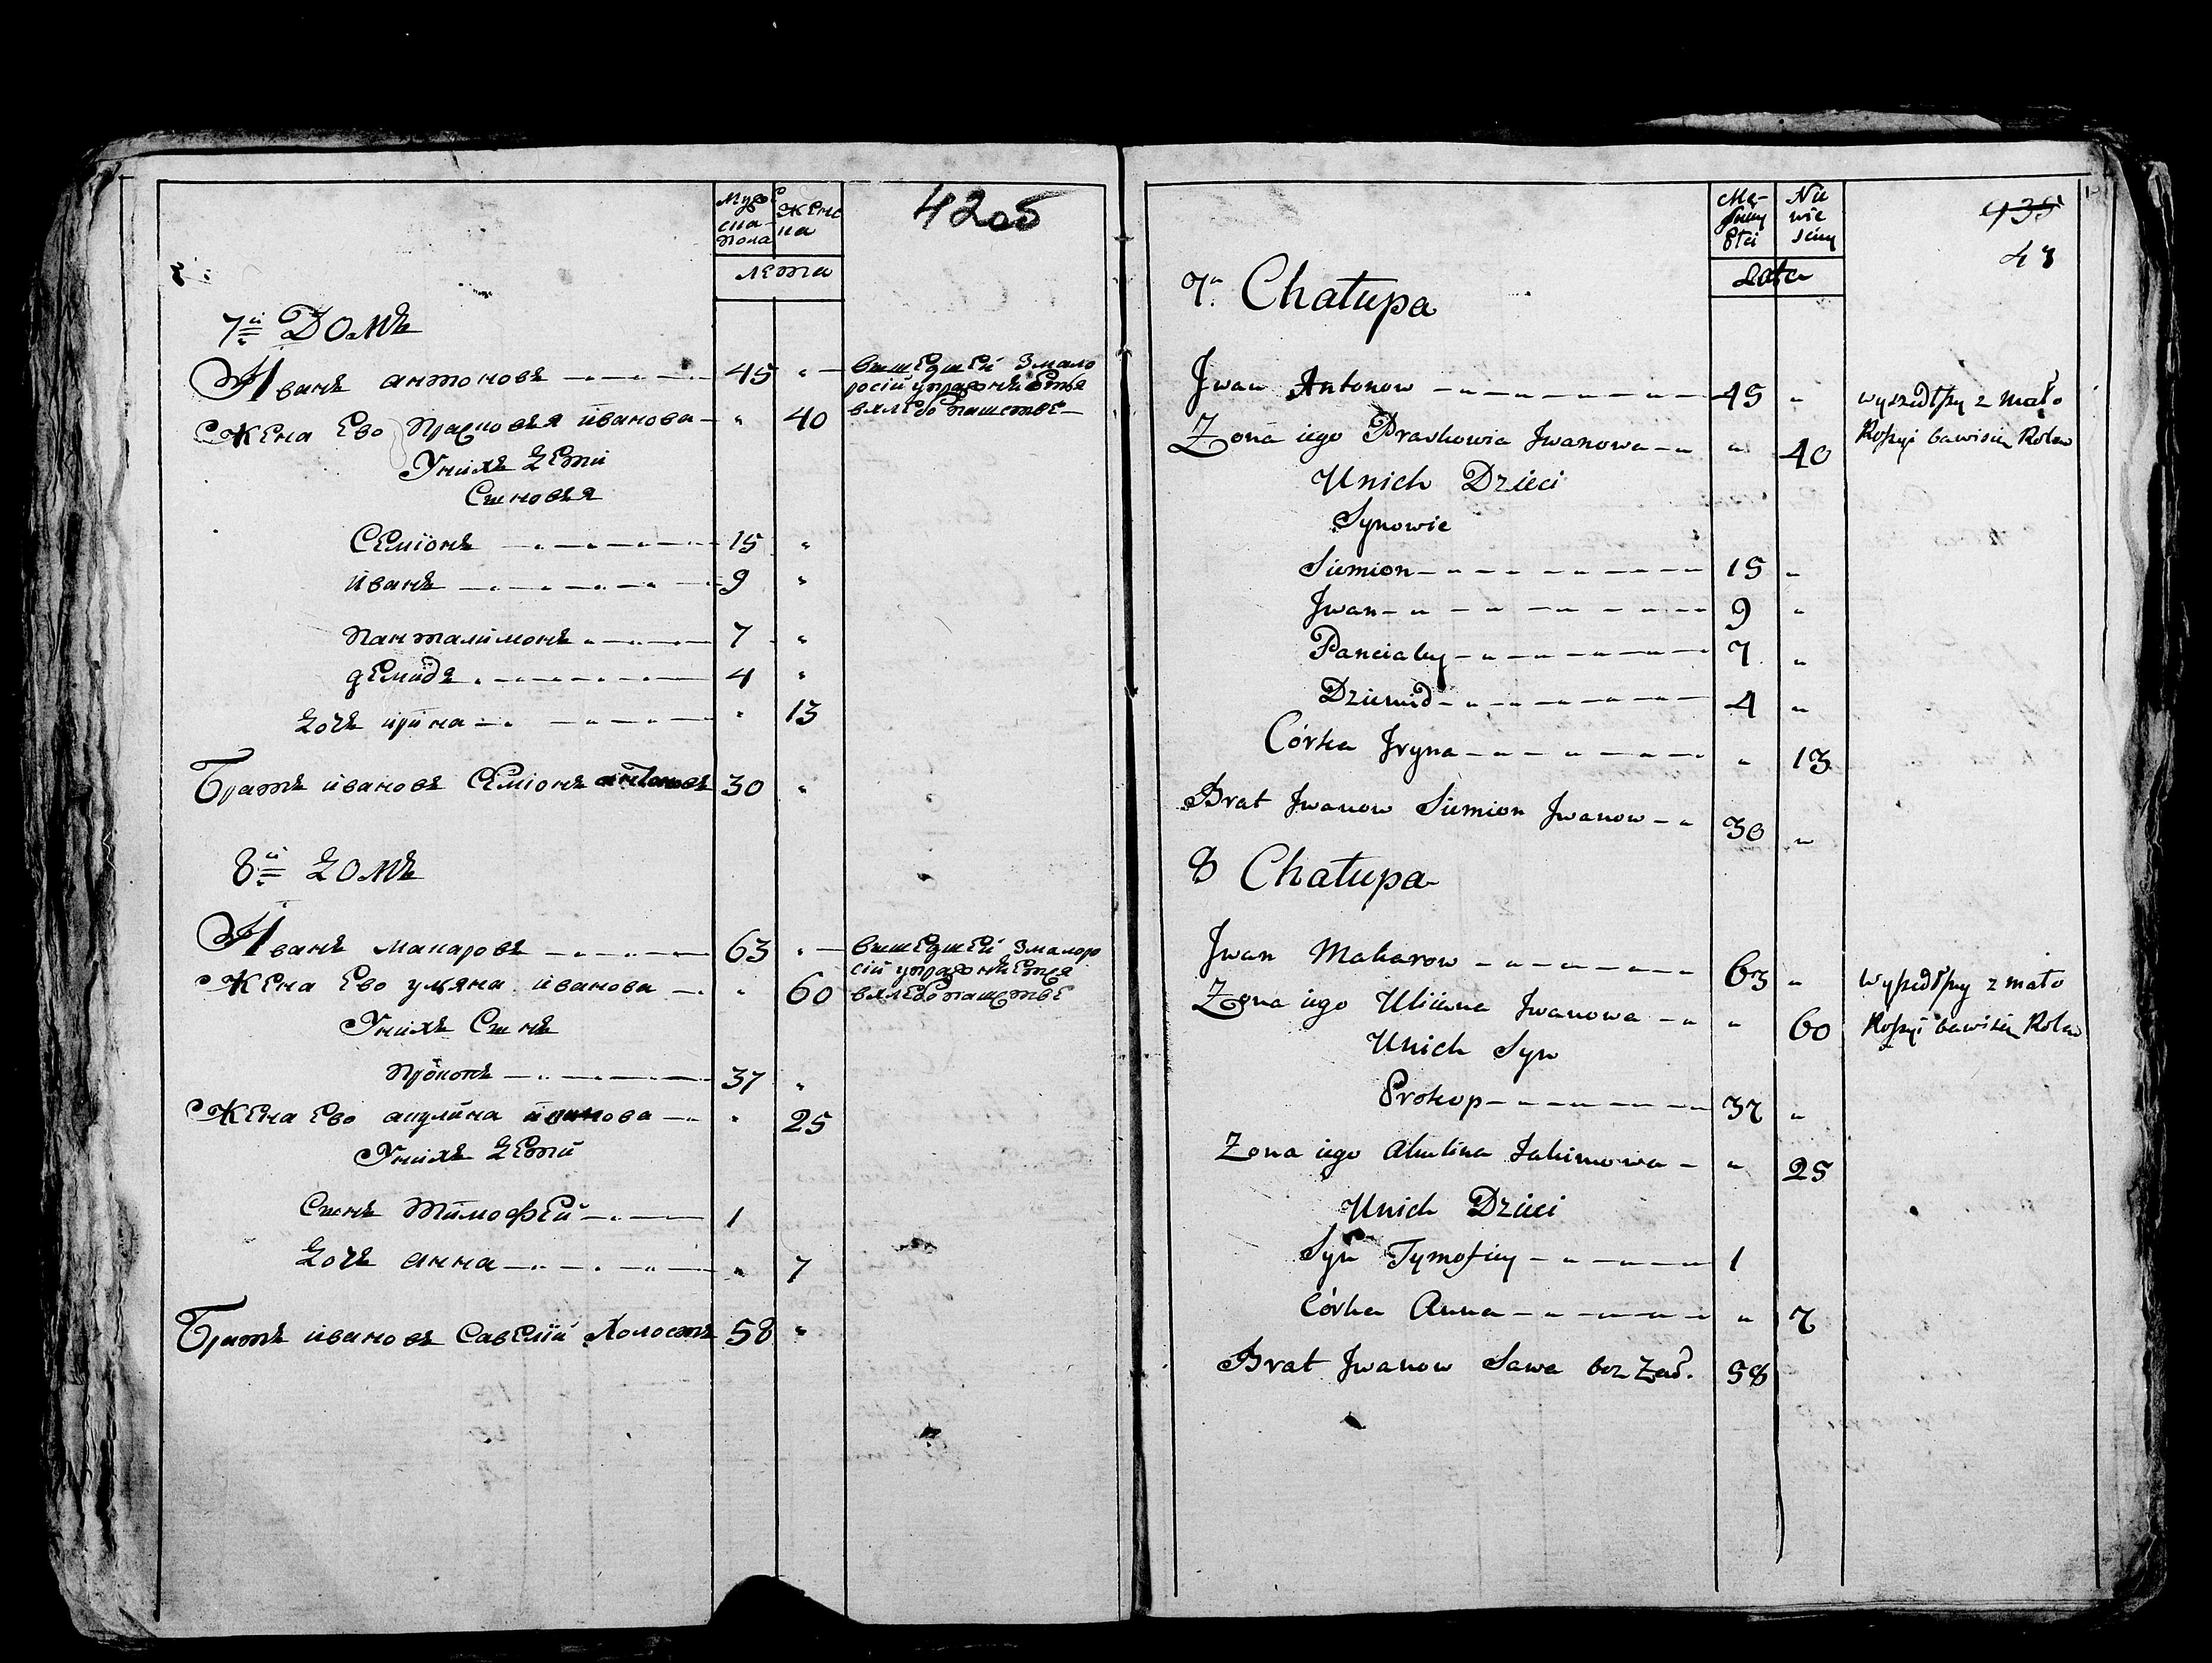 Мужеска пола
Женс на
42об
лета
7й Домъ
Иванъ антоновъ 45 вышедшей змало
росіи упражняется
Жена Ево Прасковья иванова 40 вхлебопашстве
Унихъ дети
Сыновья
Семіонъ 15
иванъ 9
Пантелимонъ 7
демидъ 4
дочь ирина 13
Братъ ивановъ Семіонъ антоновъ 30
8й домъ
Иванъ макаровъ 63 вышедшей змалоро
сіи упражняется
Жена Ево уляна иванова 60 вхлебопашстве
Унихъ Сынъ
Прокопъ 37
Жена Ево акулина якимова 25
Унихъ дети
Сынъ тимофей 1
дочь анна 7
Братъ ивановъ Савелій холостъ 58
Męskiey Płci
Niewieściey
Lata
935
43
7. Chałupa
Jwan Antonow 45 wyszedłszy z mało
Rossyi bawi się Rolą
Zona iego Praskowia Jwanowa 40
Unich Dzieci
Synowie
Siemion 15
Jwan 9
Panciałey 7
Dziemid 4
Córka Jryna 13
Brat Jwanow Siemion Jwanow 30
8 Chałupa
Jwan Makarow 63 wyszedłszy z mało
Zona iego Uliiana Jwanowa 60 Rossyi bawi się Rolą
Unich Syn
Prokop 37
Zona iego Akulina Jakimowa 25
Unich Dzieci
Syn Tymofiey 1
Córka Anna 7
Brat Jwanow Sawa bez Żad. 58